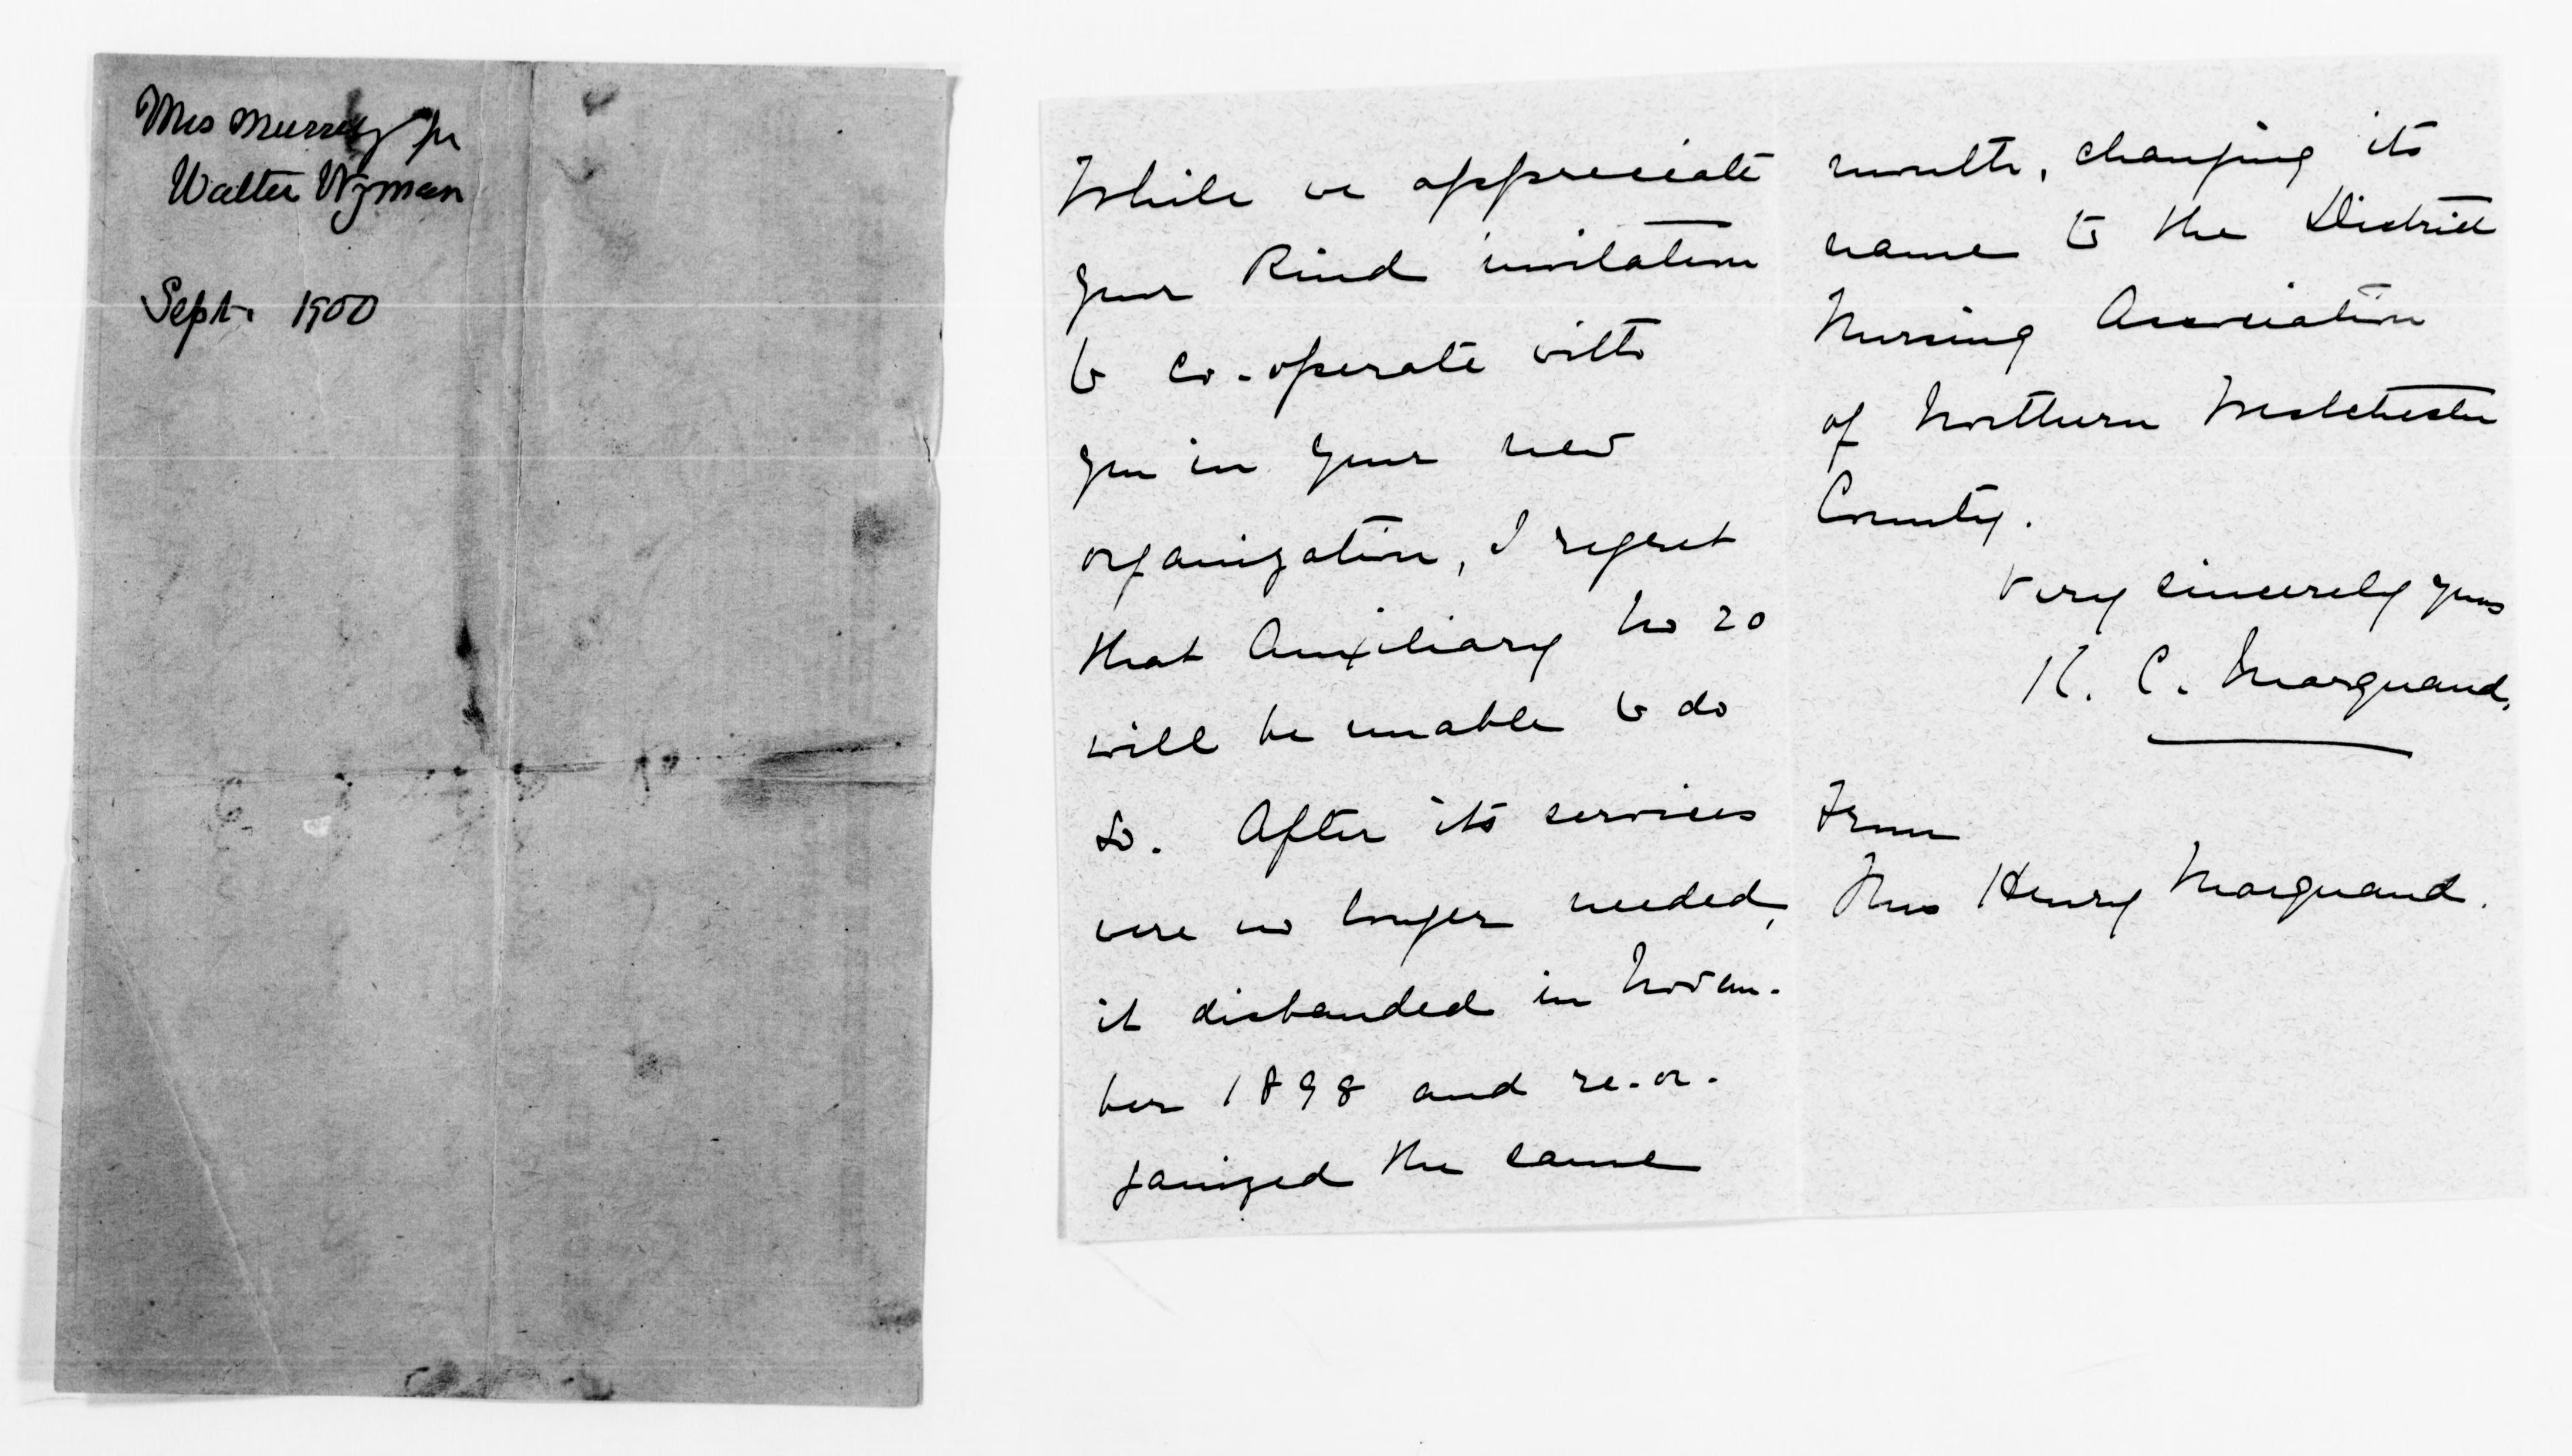 Mrs Murray Jr
Walter Wyman
Sept. 1900
While we appreciate
your kind invitation
to co-operate with
you in your new
organization, I regret
that Auxiliary No 20
will be unable to do
so. After its services
were no longer needed,
it disbanded in Novem-
ber 1898 and re-or-
ganized the same
month, changing its
name to the District
Nursing Association
of Northern Westchester
County.
Very sincerely yours
K. C. Marquand.
From
Mrs Henry Marquand.